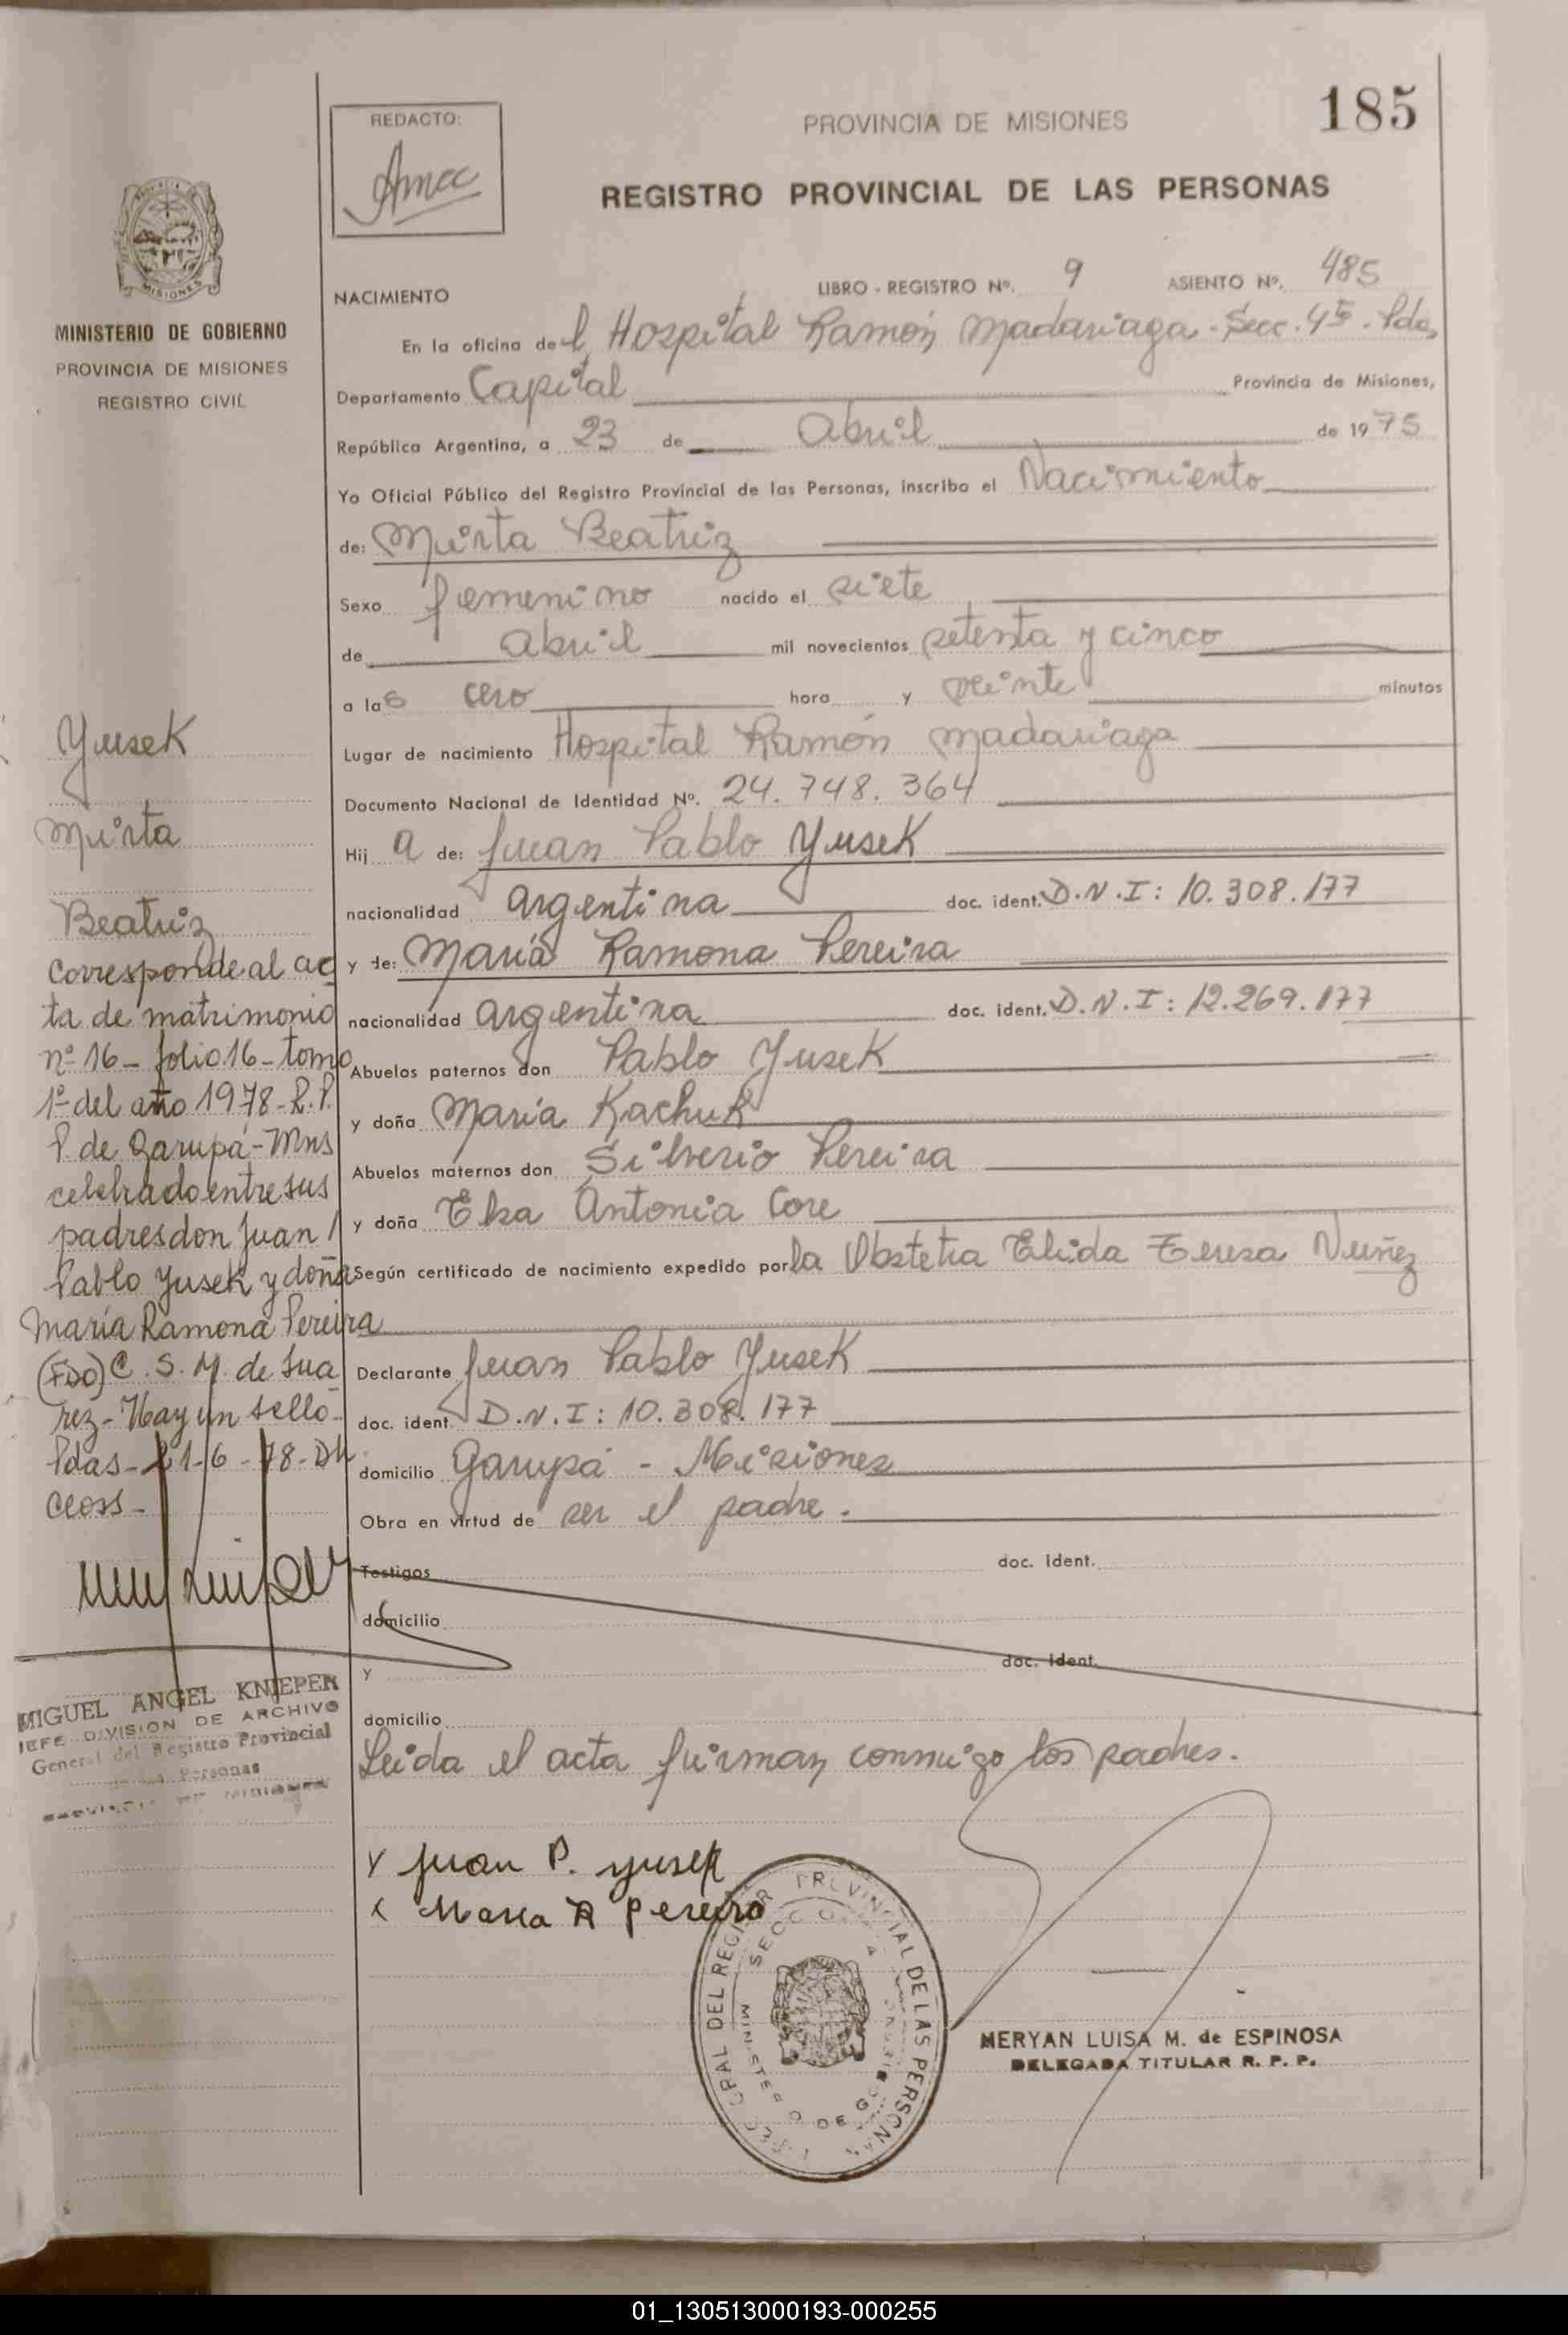 185
REDACTO:
PROVINCIA DE MISIONES
REGISTRO PROVINCIAL DE LAS PERSONAS
MISIONES
MINISTERIO DE GOBIERNO
PROVINCIA DE MISIONES
REGISTRO CIVIL
NACIMIENTO LIBRO - REGISTRO Nº. 9 ASIENTO Nº. 485
En la oficina del Hospital Ramón Madariaga - Secc. 4ta - Pdas
Departamento Capital Provincia de Misiones,
República Argentina, a 23 de Abril de 1975
Yo Oficial Público del Registro Provincial de las Personas, inscribo el Nacimiento
de: Mirta Beatriz
Sexo femenino nacido el siete
de abril mil novecientos setenta y cinco
a las cero hora y veinte minutos
Lugar de nacimiento Hospital Ramón Madariaga
Documento Nacional de Identidad Nº. 24.748.364
Hij a de: Juan Pablo Yusek
nacionalidad argentina doc. ident. D.N.I: 10.308.177
y de: María Ramona Pereira
nacionalidad argentina doc. ident. D.N.I: 12.269.177
Abuelos paternos don Pablo Yusek
y doña María Kachuk
Abuelos maternos don Silverio Pereira
y doña Elsa Antonia Core
Según certificado de nacimiento expedido por la Obstetra Elida Teresa Nuñez
Declarante Juan Pablo Yusek
doc. ident. D.N.I: 10.308.177
domicilio Garupá - Misiones
Obra en virtud de ser el padre.
Testigos doc. ident.
domicilio
y doc. ident.
domicilio
Leida el acta firman conmigo los padres.
Yusek
Mirta
Beatriz
Corresponde al ac
ta de matrimonio
nº 16 - folio 16 - tomo
1º del año 1978 - R.P.
P. de Garupá - Mns
celebrado entre sus
padres don Juan /
Pablo Yusek y doña
María Ramona Pereira
(FDO) C. S. M. de Sua
rez - Hay un sello -
Pdas - 21-6-78 - DH.
Closs -
MIGUEL ANGEL KNIEPER
JEFE DIVISION DE ARCHIVO
General del Registro Provincial
de las Personas
PROVINCIA DE MISIONES
Juan P. yusek
Maria R Pereira
MERYAN LUISA M. de ESPINOSA
DELEGADA TITULAR R. P. P.
01_130513000193-000255